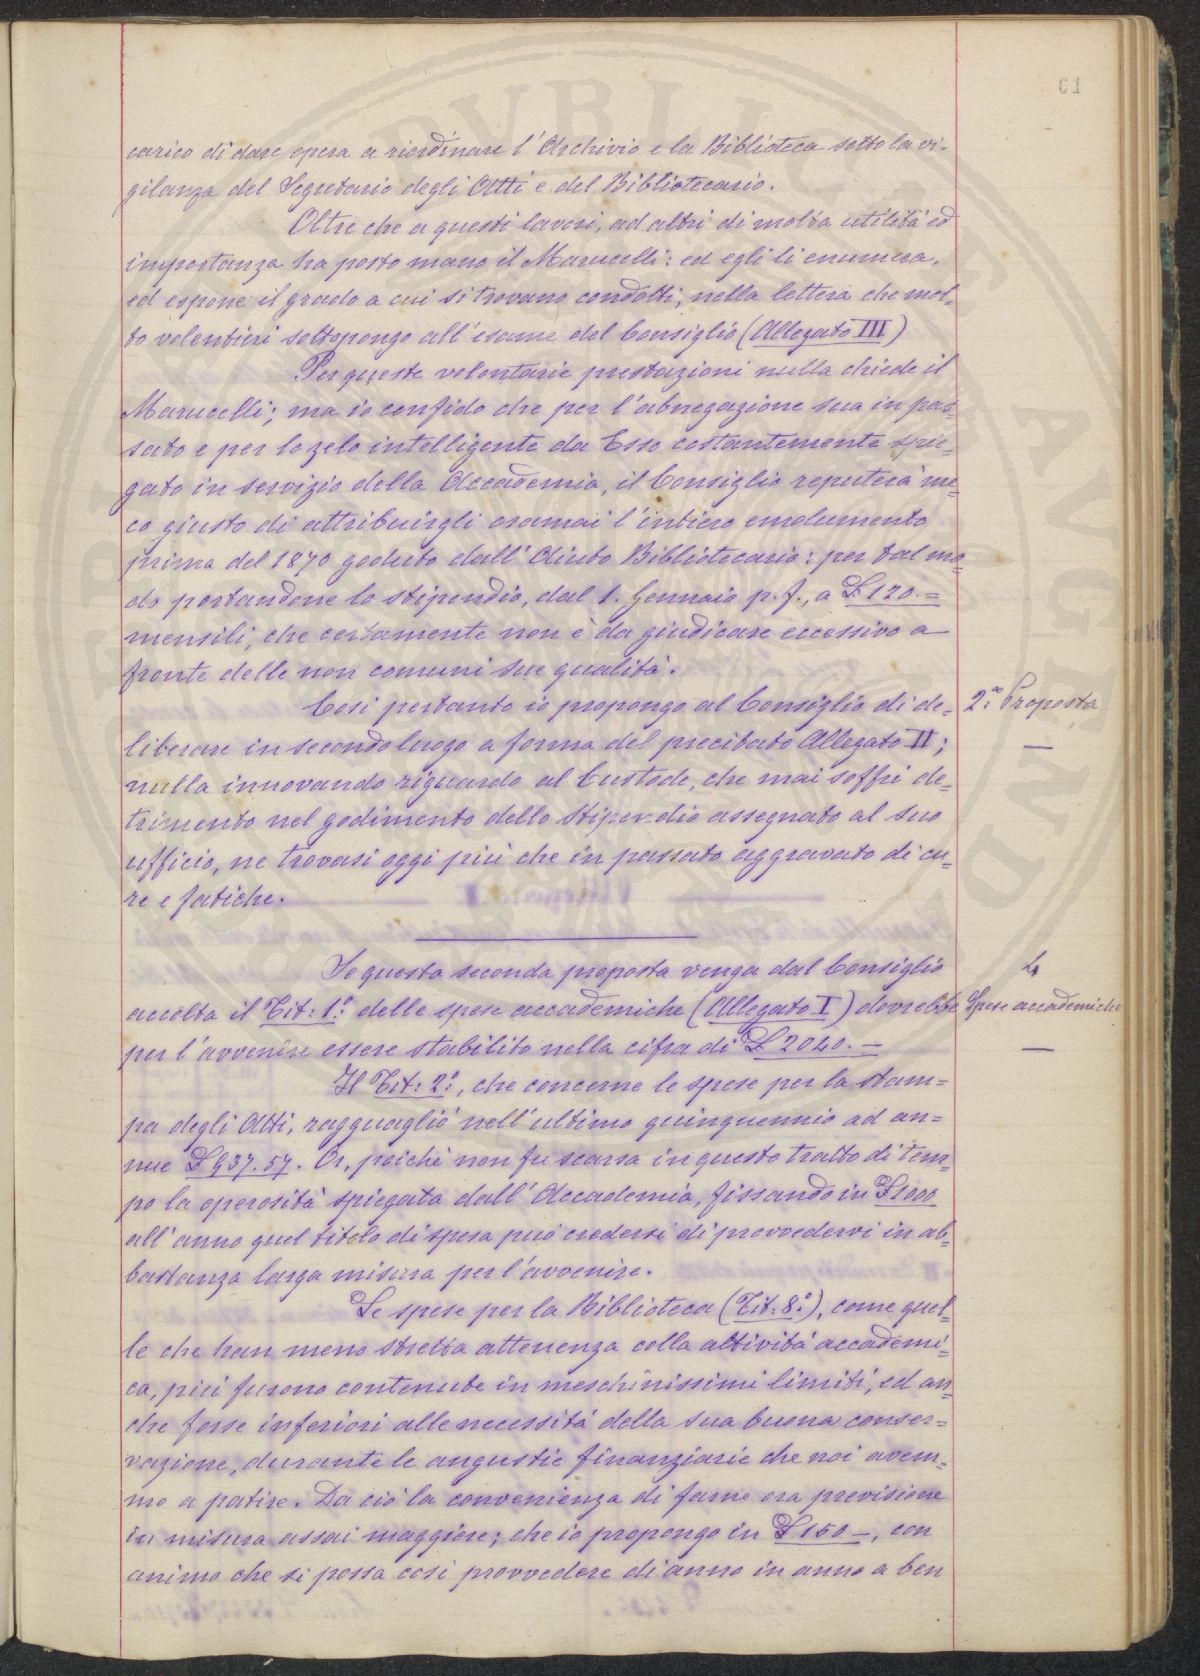 61
carico di dare opera a riordinare l'Archivio e la Biblioteca sotto la vi-
gilanza del Segretario degli Atti e del Bibliotecario.
Oltre che a questi lavori, ad altri di molta utilità ed
importanza ha posto mano il Marucelli: ed egli li enumera,
ed espone il grado a cui si trovano condotti, nella lettera che mol-
to volentieri sottopongo all'esame del Consiglio (Allegato III)
Per queste volontarie prestazioni nulla chiede il
Marucelli; ma io confido che per l'abnegazione sua in pas=
sato e per lo zelo intelligente da Esso costantemente spie=
gato in servizio della Accademia, il Consiglio reputerà me=
co giusto di attribuirgli oramai l'intiero emolumento
prima del 1870 goduto dall'Aiuto Bibliotecario: per tal mo=
do portandone lo stipendio, dal 1. Gennaio p. f., a £ 120.=
mensili, che certamente non è da giudicare eccessivo a
fronte delle non comuni sue qualità.
Così pertanto io propongo al Consiglio di de=
2.a Proposta
liberare in secondo luogo a forma del precitato Allegato II;
nulla innovando riguardo al Custode, che mai soffrì de=
trimento nel godimento dello stipendio assegnato al suo
ufficio, ne trovasi oggi più che in passato aggravato di cu=
re e fatiche.
Se questa seconda proposta venga dal Consiglio
4
accolta il Tit: 1.o delle spese accademiche (Allegato I) dovrebbe
Spese accademiche
per l'avvenire essere stabilito nella cifra di £ 2040.—
Il Tit: 2.o, che concerne le spese per la stam=
pa degli Atti, ragguagliò nell'ultimo quinquennio ad an=
nue £ 937.57. Or, poichè non fu scarsa in questo tratto di tem=
po la operosità spiegata dall'Accademia, fissando in £ 1000
all'anno quel titolo di spesa può credersi di provvedervi in ab=
bastanza larga misura per l'avvenire.
Le spese per la Biblioteca (Tit: 8.o), come quel=
le che han meno stretta attenenza colla attività accademi=
ca, più furono contenute in meschinissimi limiti, ed an=
che forse inferiori alle necessità della sua buona conser=
vazione, durante le angustie finanziarie che noi avem=
mo a patire. Da ciò la convenienza di farne ora previsione
in misura assai maggiore; che io propongo in £ 150—, con
animo che si possa così provvedere di anno in anno a ben